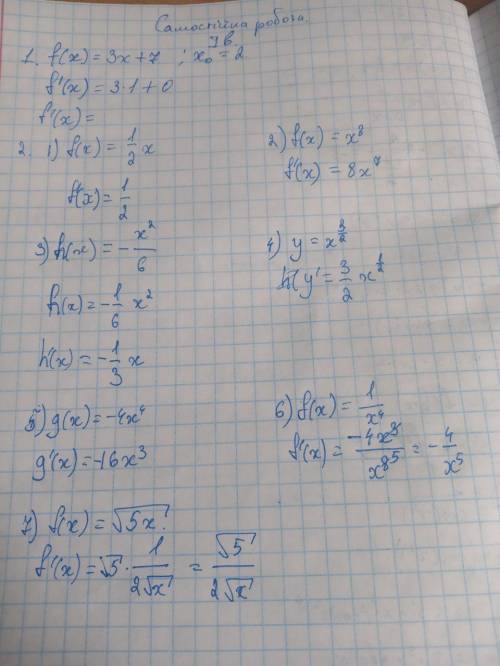 Самостійна робота.
I в.
1. f(x) = 3x + 7 ; x₀ = 2
f'(x) = 3·1 + 0
f'(x) =
2. 1) f(x) = 1/2 x
f'(x) = 1/2
2) f(x) = x⁸
f'(x) = 8x⁷
3) h(x) = - x²/6
h(x) = - 1/6 x²
h'(x) = - 1/3 x
4) y = x^(3/2)
y' = 3/2 x^(1/2)
5) g(x) = -4x⁴
g'(x) = -16x³
6) f(x) = 1/x⁴
f'(x) = -4x³/x⁸ = - 4/x⁵
7) f(x) = √5x
f'(x) = √5 · 1/2√x = √5/2√x